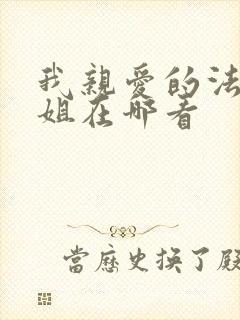 我親愛的法
姐在哪看
當歷史換了